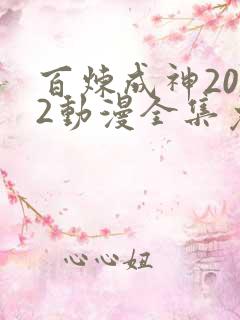 百煉成神20
2動漫全集
心心妞